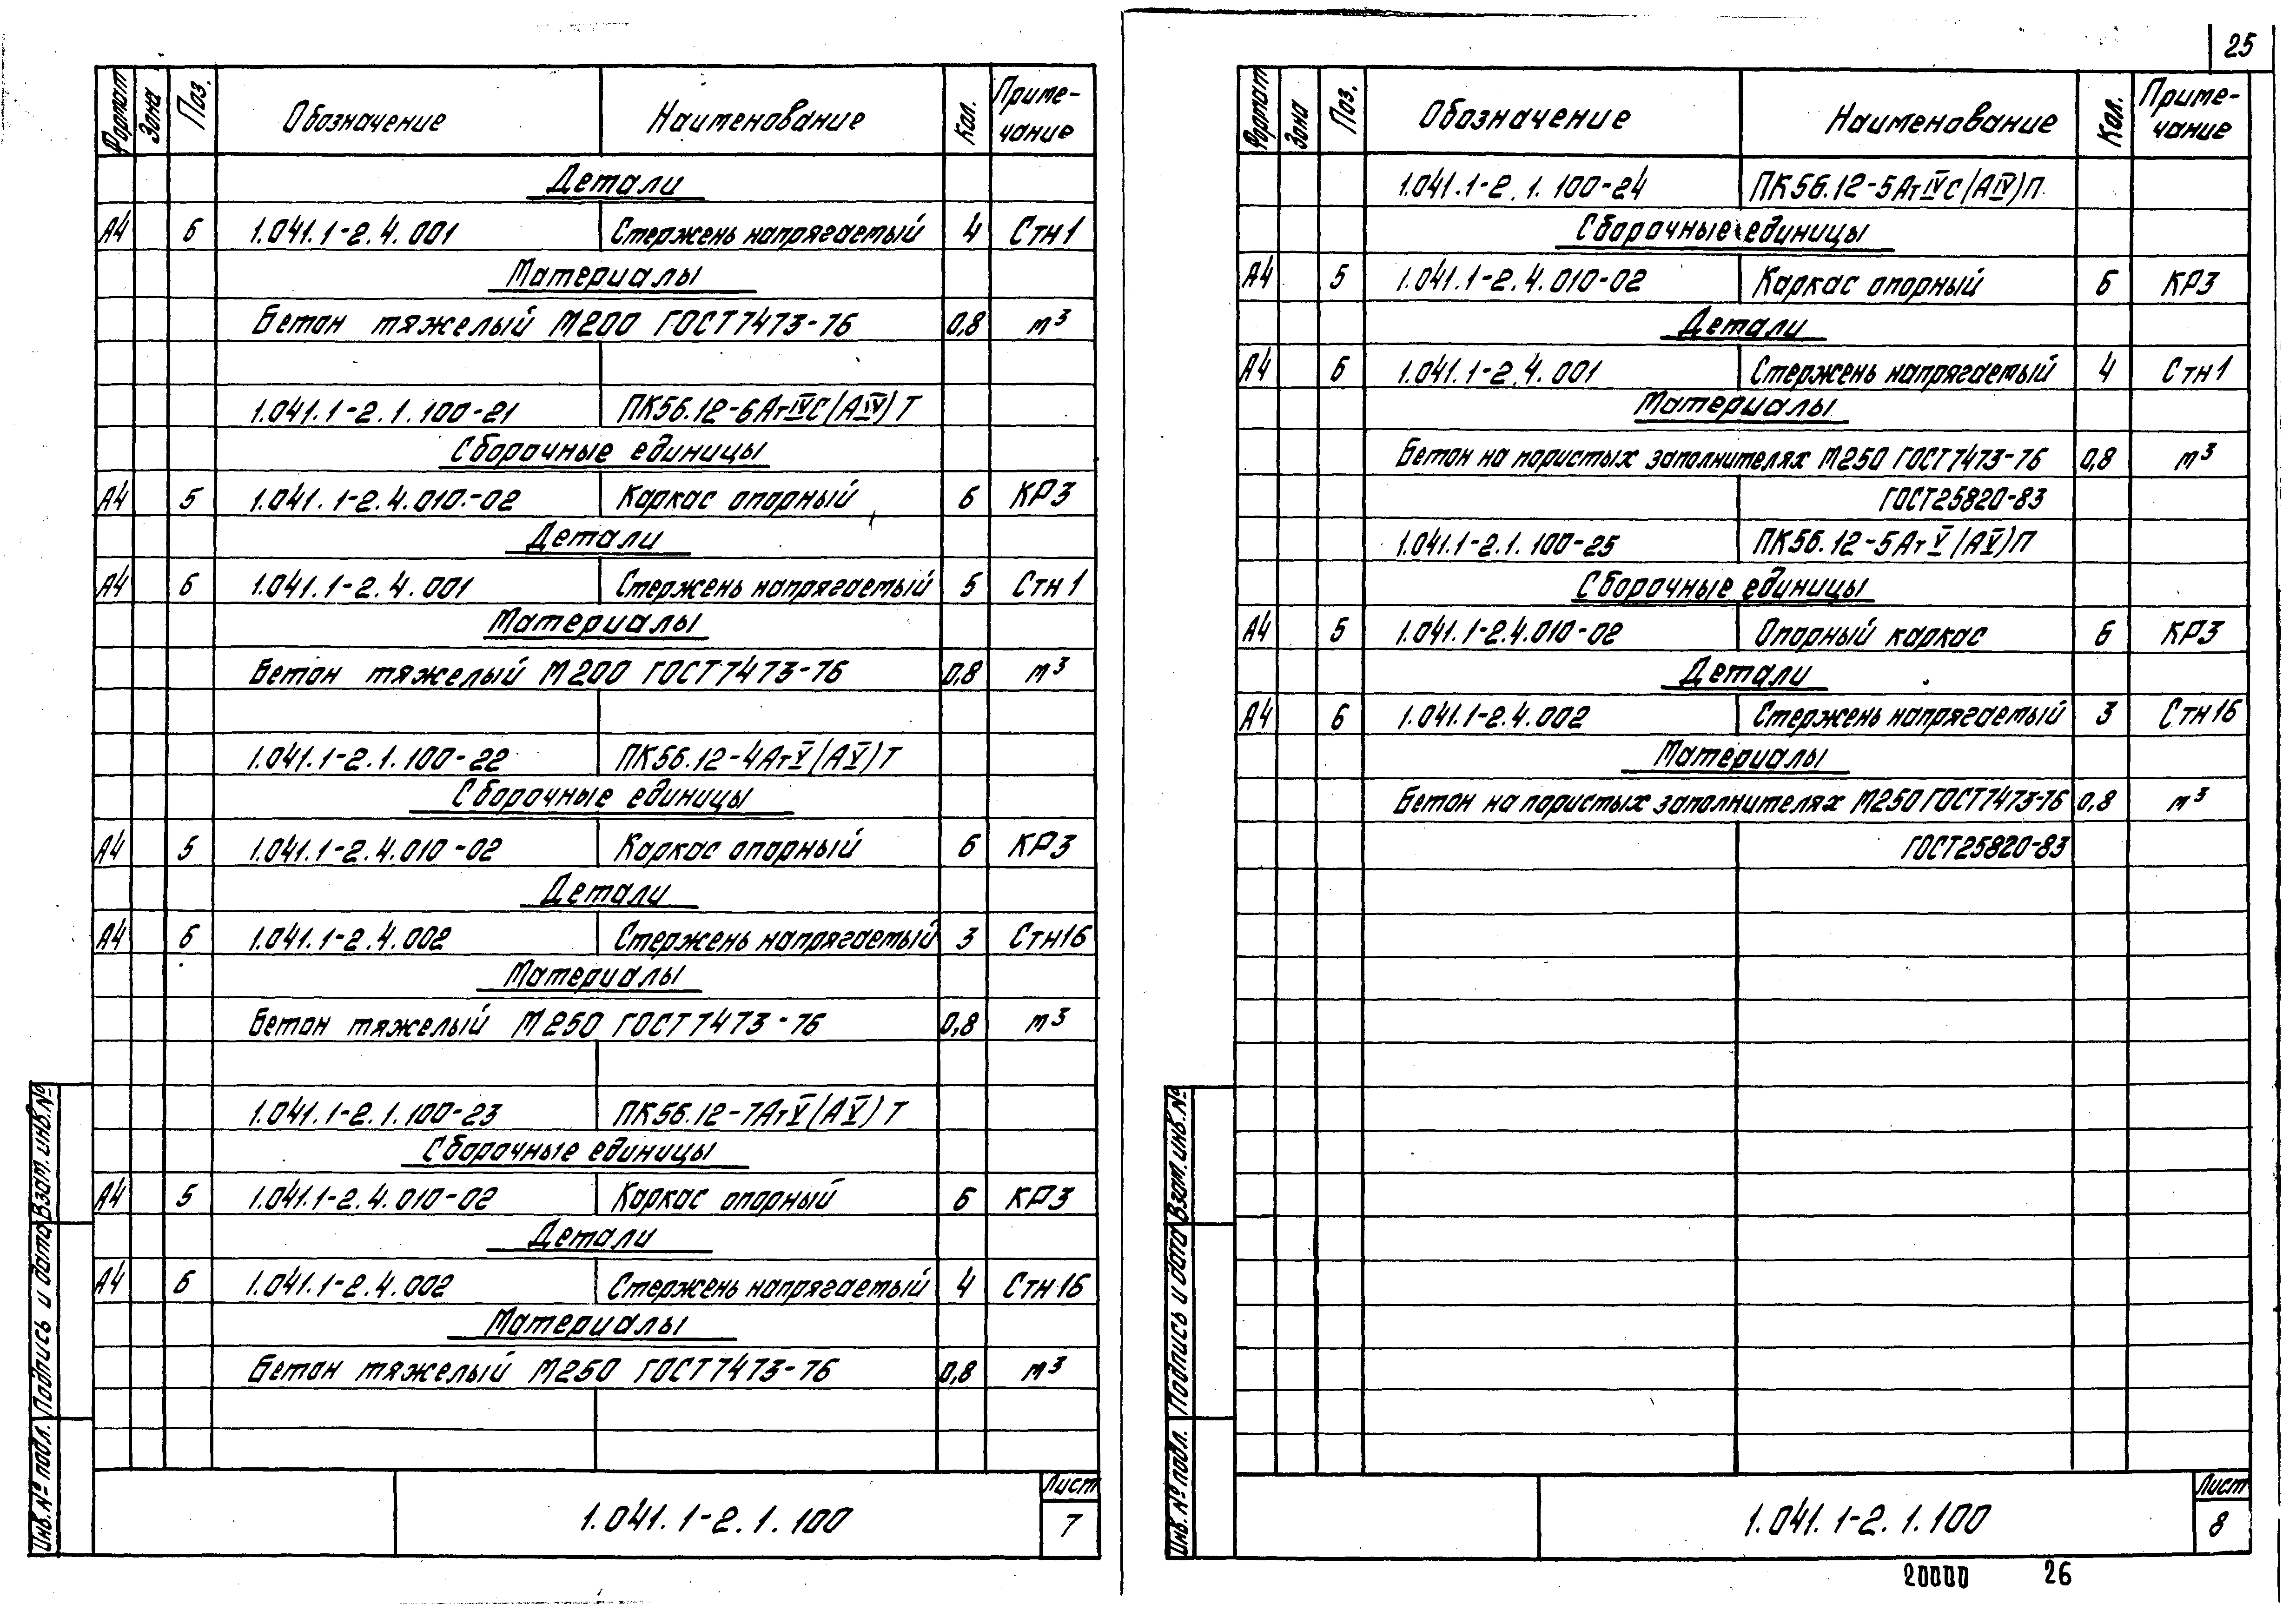 Формат Зона Поз. Обозначение Наименование Кол. Приме-
чание
Детали
А4 6 1.041.1-2.4.001 Стержень напрягаемый 4 Стн1
Материалы
Бетон тяжелый М200 ГОСТ7473-76 0,8 м³
1.041.1-2.1.100-21 ПК56.12-6АтIVС(АIV)Т
Сборочные единицы
А4 5 1.041.1-2.4.010-02 Каркас опорный 6 КР3
Детали
А4 6 1.041.1-2.4.001 Стержень напрягаемый 5 Стн1
Материалы
Бетон тяжелый М200 ГОСТ7473-76 0,8 м³
1.041.1-2.1.100-22 ПК56.12-4АтV(АV)Т
Сборочные единицы
А4 5 1.041.1-2.4.010-02 Каркас опорный 6 КР3
Детали
А4 6 1.041.1-2.4.002 Стержень напрягаемый 3 Стн16
Материалы
Бетон тяжелый М250 ГОСТ7473-76 0,8 м³
1.041.1-2.1.100-23 ПК56.12-7АтV(АV)Т
Сборочные единицы
А4 5 1.041.1-2.4.010-02 Каркас опорный 6 КР3
Детали
А4 6 1.041.1-2.4.002 Стержень напрягаемый 4 Стн16
Материалы
Бетон тяжелый М250 ГОСТ7473-76 0,8 м³
Инв.№ подл. Подпись и дата Взам.инв.№
1.041.1-2.1.100
Лист
7
25
Формат Зона Поз. Обозначение Наименование Кол. Приме-
чание
1.041.1-2.1.100-24 ПК56.12-5АтIVС(АIV)П
Сборочные единицы
А4 5 1.041.1-2.4.010-02 Каркас опорный 6 КР3
Детали
А4 6 1.041.1-2.4.001 Стержень напрягаемый 4 Стн1
Материалы
Бетон на пористых заполнителях М250 ГОСТ7473-76 0,8 м³
ГОСТ25820-83
1.041.1-2.1.100-25 ПК56.12-5АтV(АV)П
Сборочные единицы
А4 5 1.041.1-2.4.010-02 Опорный каркас 6 КР3
Детали
А4 6 1.041.1-2.4.002 Стержень напрягаемый 3 Стн16
Материалы
Бетон на пористых заполнителях М250 ГОСТ7473-76 0,8 м³
ГОСТ25820-83
Инв.№ подл. Подпись и дата Взам.инв.№
1.041.1-2.1.100
Лист
8
20000 26